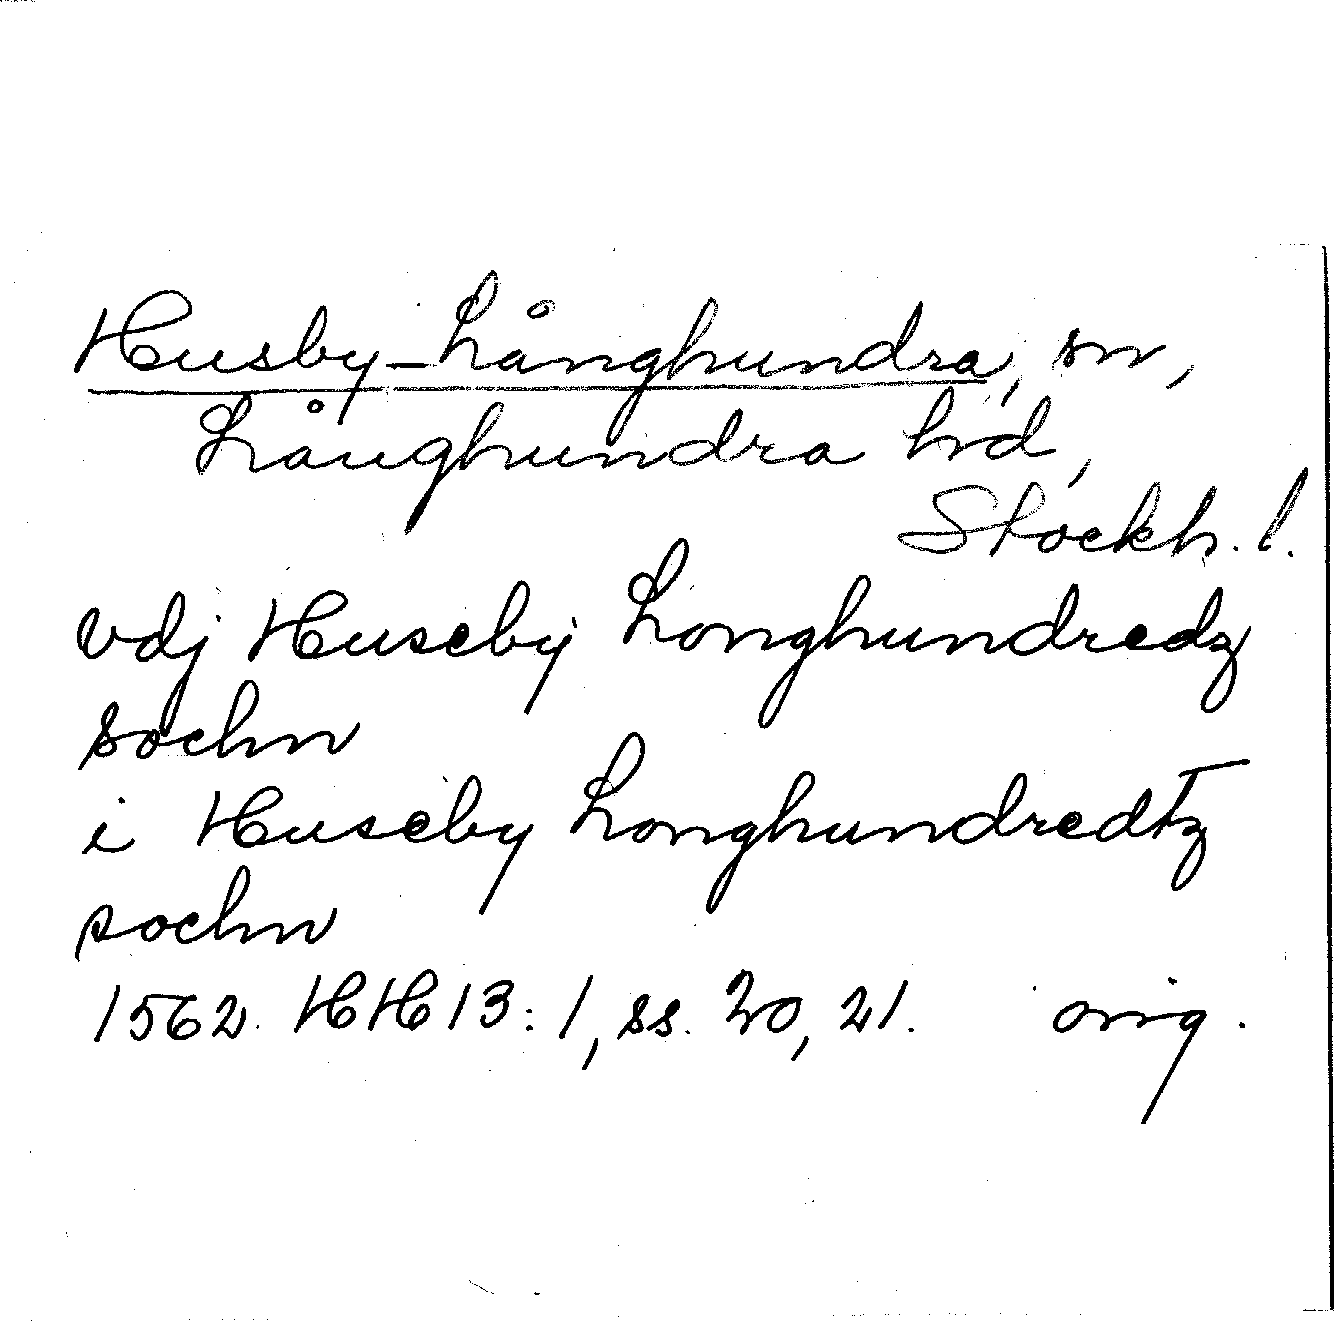 Husby-Långhundra, sn,
Långhundra hd,
Stockh. l.
vdj Huseby Longhundredz
sochn
i Huseby Longhundredtz
sochn
1562. HH 13:1, ss. 20, 21. orig.